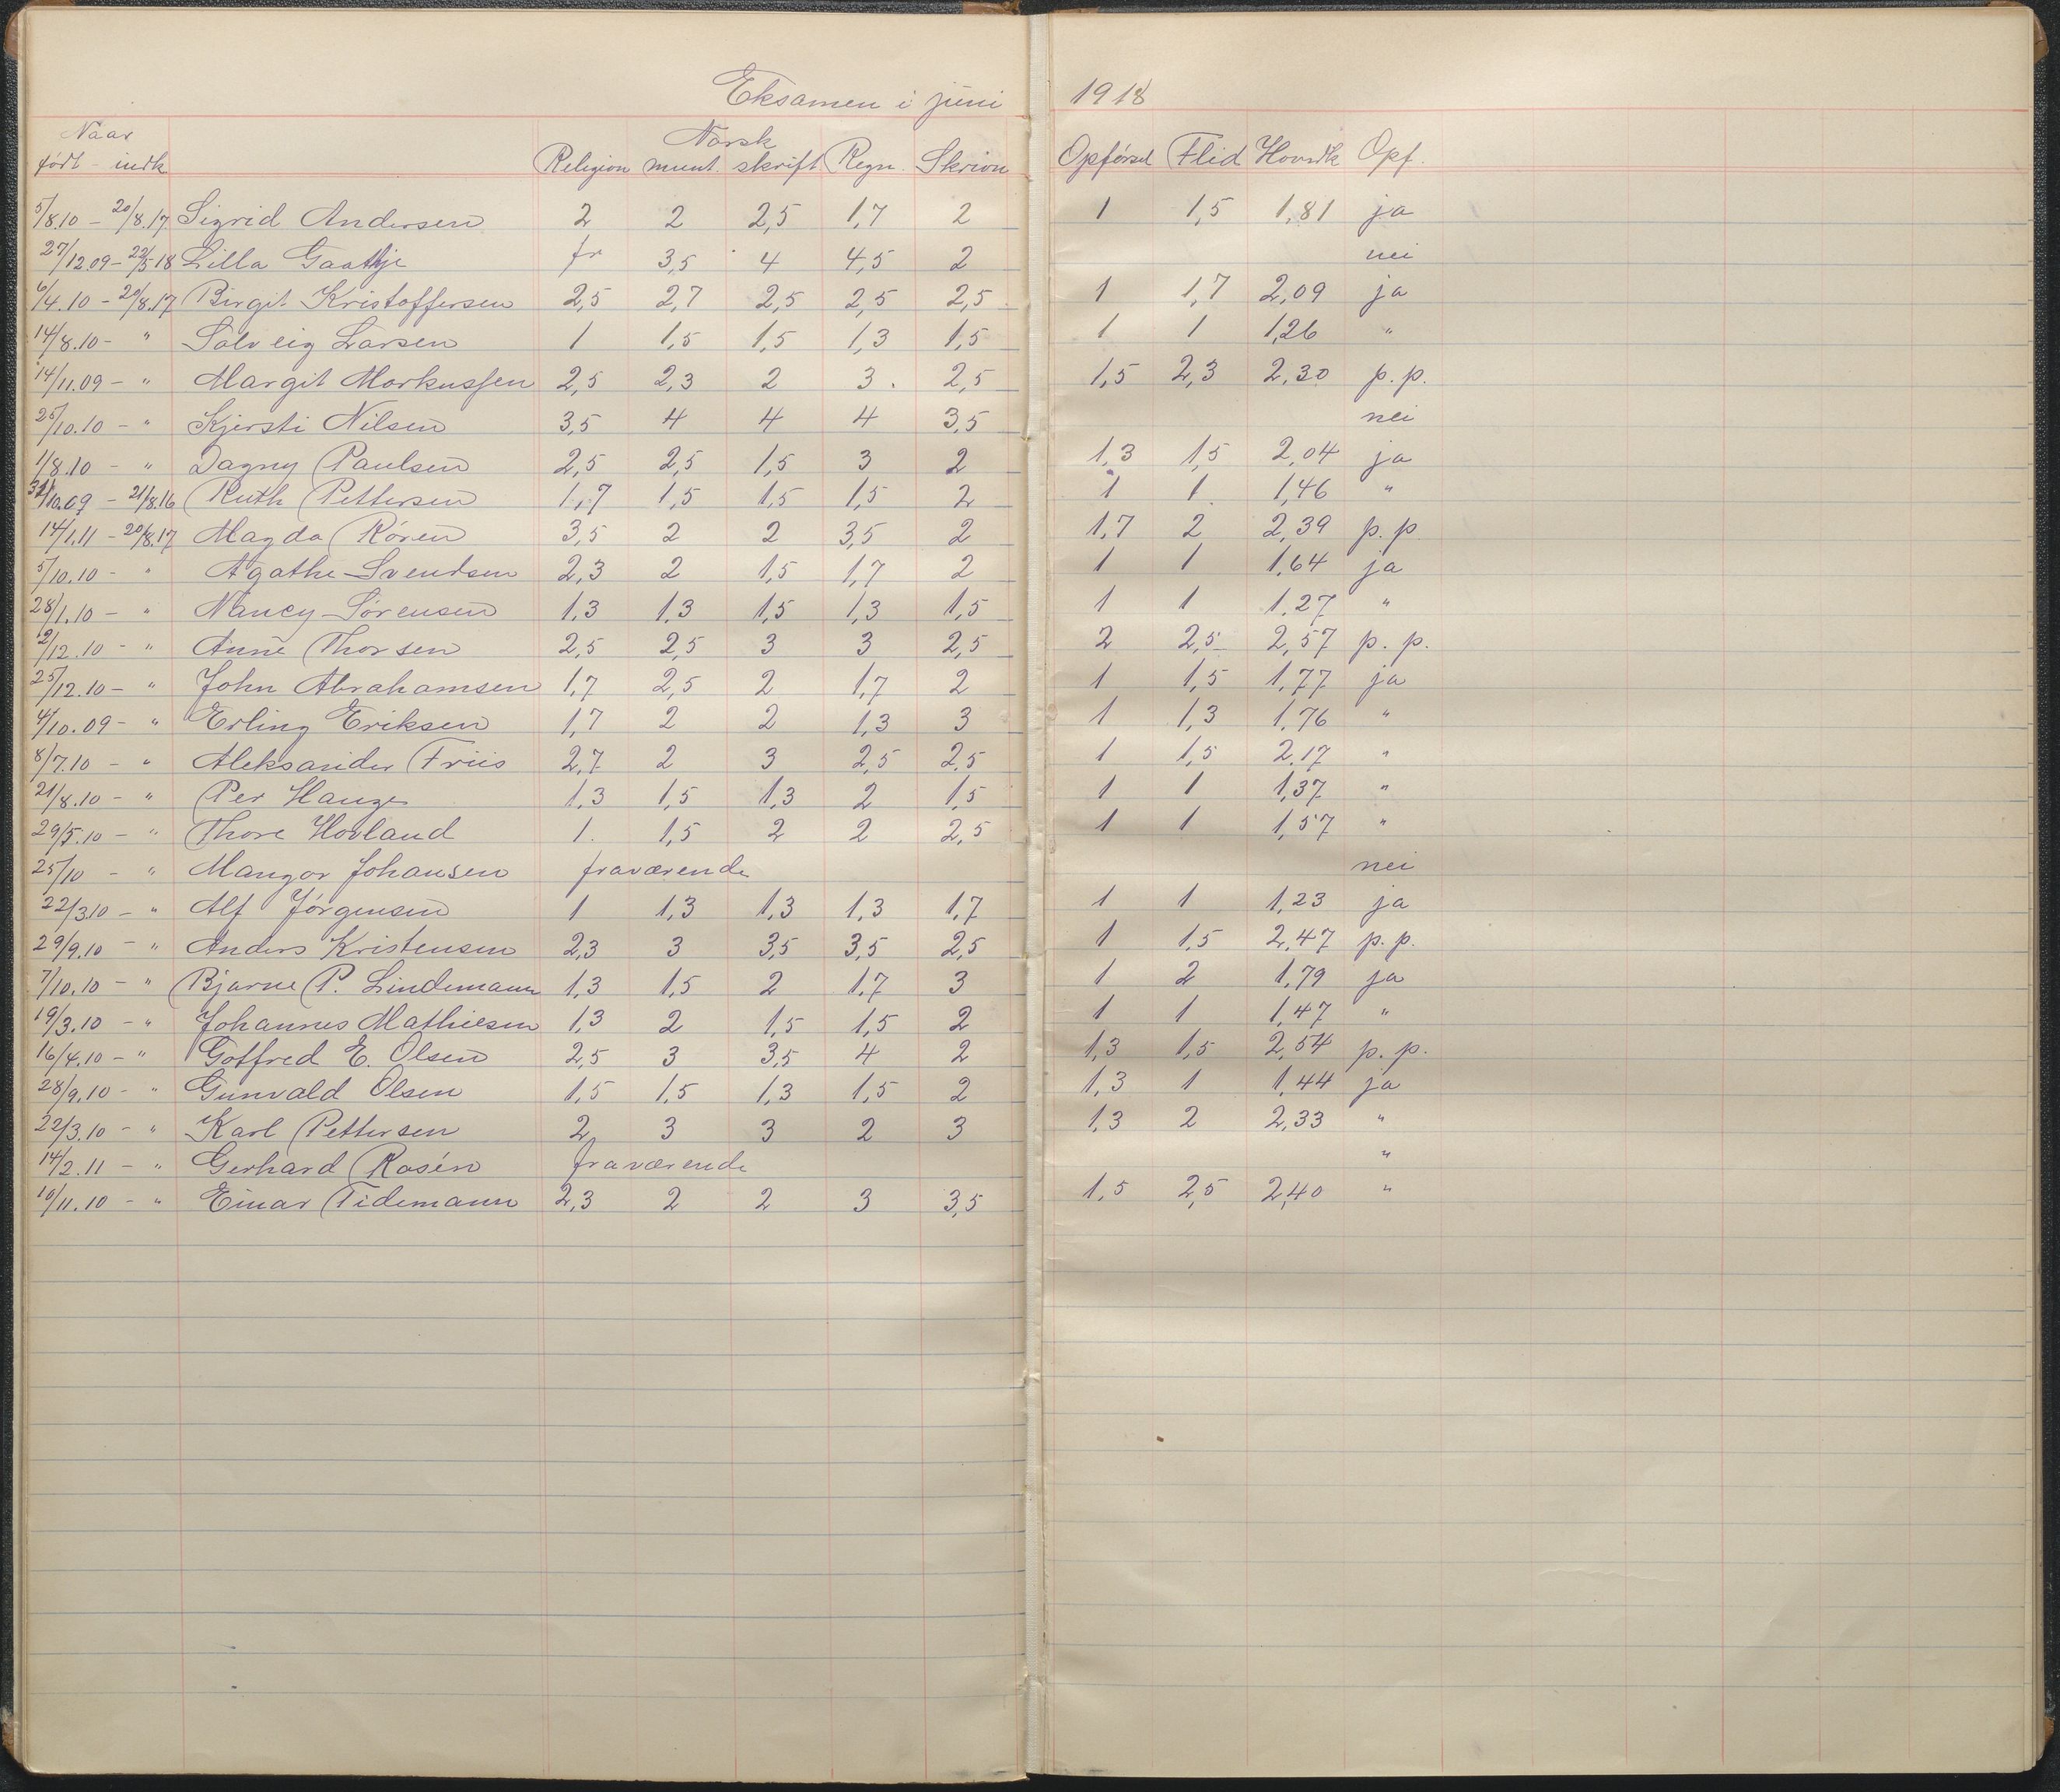 Eksamen i juni 1918
Naar Norsk
født - indk Religion munt. skrift Regn. Skrivn Opførsel Flid Hovedk Opf.
5/8.10 - 20/8.17 Sigrid Andersen 2 2 2,5 1,7 2 1 1,5 1,81 ja
27/12.09 - 22/5.18 Lilla Gaathje fr 3,5 4 4,5 2 nei
6/4.10 - 20/8.17 Birgit Kristoffersen 2,5 2,7 2,5 2,5 2,5 1 1,7 2,09 ja
14/8.10 - " Solveig Larsen 1 1,5 1,5 1,3 1,5 1 1 1,26 "
14/11.09 - " Margit Markussen 2,5 2,3 2 3. 2,5 1,5 2,3 2,30 p.p.
25/10.10 - " Kjersti Nilsen 3,5 4 4 4 3,5 nei
1/8.10 - " Dagny Paulsen 2,5 2,5 1,5 3 2 1,3 1,5 2,04 ja
/10.09 - 21/8.16 Ruth Pettersen 1,7 1,5 1,5 1,5 2 1 1 1,46 "
14/1.11 - 20/8.17 Magda Røren 3,5 2 2 3,5 2 1,7 2 2,39 p.p.
5/10.10 - " Agathe Svendsen 2,3 2 1,5 1,7 2 1 1 1,64 ja
28/1.10 - " Nancy Sørensen 1,3 1,3 1,5 1,3 1,5 1 1 1,27 "
2/12.10 - " Anne Thorsen 2,5 2,5 3 3 2,5 2 2,5 2,57 p.p.
25/12.10 - " John Abrahamsen 1,7 2,5 2 1,7 2 1 1,5 1,77 ja
4/10.09 - " Erling Eriksen 1,7 2 2 1,3 3 1 1,3 1,76 "
8/7.10 - " Aleksander Friis 2,7 2 3 2,5 2,5 1 1,5 2.17 "
21/8.10 - " Per Hauge 1,3 1,5 1,3 2 1,5 1 1 1,37 "
29/5.10 - " Thore Hovland 1. 1,5 2 2 2,5 1 1 1,57 "
25/10 - " Mangor Johansen fraværende nei
22/3.10 - " Alf Jørgensen 1 1,3 1,3 1,3 1,7 1 1 1,23 ja
29/9.10 - " Anders Kristensen 2,3 3 3,5 3,5 2,5 1 1,5 2,47 p.p.
7/10.10 - " Bjarne P. Lindemann 1,3 1,5 2 1.7 3 1 2 1,79 ja
19/3.10 - " Johannes Mathiesen 1,3 2 1,5 1,5 2 1 1 1,47 "
16/4.10 - " Gotfred E. Olsen 2,5 3 3,5 4 2 1,3 1,5 2,54 p.p.
28/9.10 - " Gunvald Olsen 1,5 1,5 1,3 1,5 2 1,3 1 1,44 ja
22/3.10 - " Karl Pettersen 2 3 3 2 3 1,3 2 2,33 "
14/2.11 - " Gerhard Rosén fraværende "
10/11.10 - " Einar Tidemann 2,3 2 2 3 3,5 1,5 2,5 2,40 "